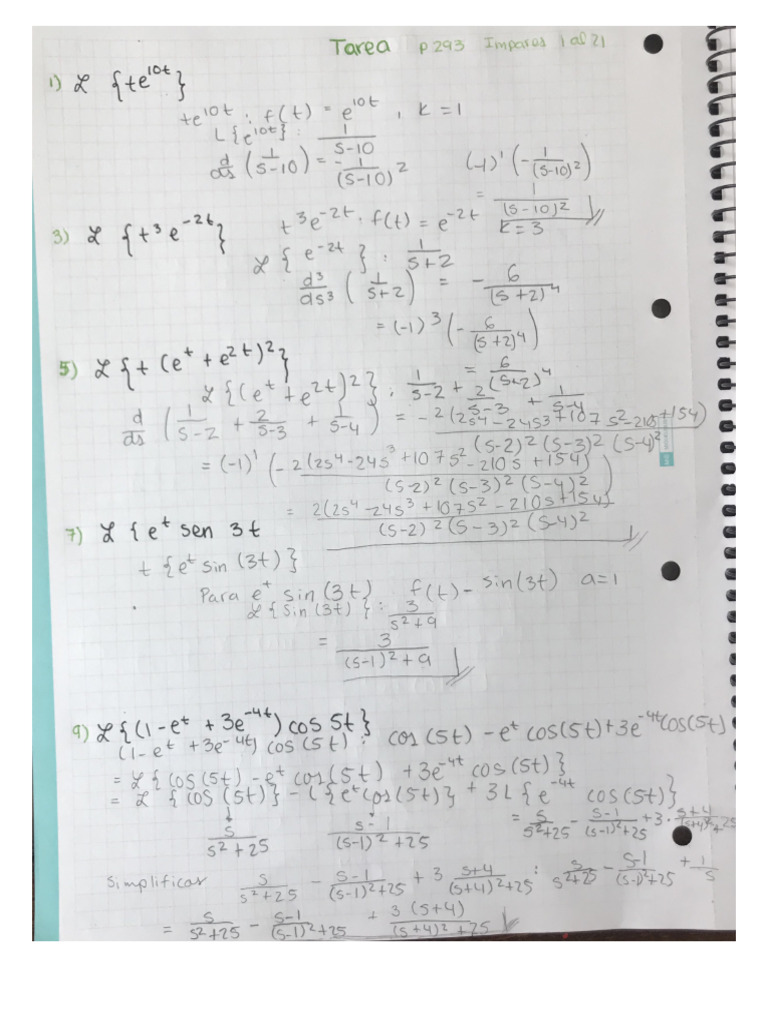 Tarea p 293 Impares 1 al 21
1) ℒ {te^10t}
te^10t : f(t) = e^10t , k = 1
L{e^10t} : 1/(s-10)
d/ds (1/(s-10)) = - 1/(s-10)^2 (-1)' (- 1/(s-10)^2)
= 1/(s-10)^2
3) ℒ {t^3 e^-2t} t^3 e^-2t . f(t) = e^-2t k = 3
ℒ {e^-2t} : 1/(s+2)
d^3/ds^3 (1/(s+2)) = - 6/(s+2)^4
= (-1)^3 (- 6/(s+2)^4)
= 6/(s+2)^4
5) ℒ {t (e^t + e^2t)^2}
ℒ {(e^t + e^2t)^2} : 1/(s-2) + 2/(s-3) + 1/(s-4)
d/ds (1/(s-2) + 2/(s-3) + 1/(s-4)) = - 2(2s^4 - 24s^3 + 107s^2 - 210s + 154)/((s-2)^2 (s-3)^2 (s-4)^2)
= (-1)' (- 2(2s^4 - 24s^3 + 107s^2 - 210s + 154)/((s-2)^2 (s-3)^2 (s-4)^2))
= 2(2s^4 - 24s^3 + 107s^2 - 210s + 154)/((s-2)^2 (s-3)^2 (s-4)^2)
7) ℒ {e^t sen 3t
t {e^t sin (3t)}
Para e^t sin (3t) f(t) - sin(3t) a=1
ℒ {sin (3t)} : 3/(s^2+9)
= 3/((s-1)^2+9)
9) ℒ {(1-e^t + 3e^-4t) cos 5t}
(1-e^t + 3e^-4t) cos (5t) : cos (5t) - e^t cos(5t) + 3e^-4t cos(5t)
= ℒ {cos (5t) - e^t cos(5t) + 3e^-4t cos (5t)}
= ℒ {cos (5t)} - L{e^t cos (5t)} + 3L {e^-4t cos (5t)}
s/(s^2+25) (s-1)/((s-1)^2+25) = s/(s^2+25) - (s-1)/((s-1)^2+25) + 3 · (s+4)/((s+4)^2+25
Simplificar s/(s^2+25) - (s-1)/((s-1)^2+25) + 3 (s+4)/((s+4)^2+25 : s/(s^2+25) - (s-1)/((s-1)^2+25 + 1/s
= s/(s^2+25) - (s-1)/((s-1)^2+25) + 3 (s+4)/((s+4)^2+25